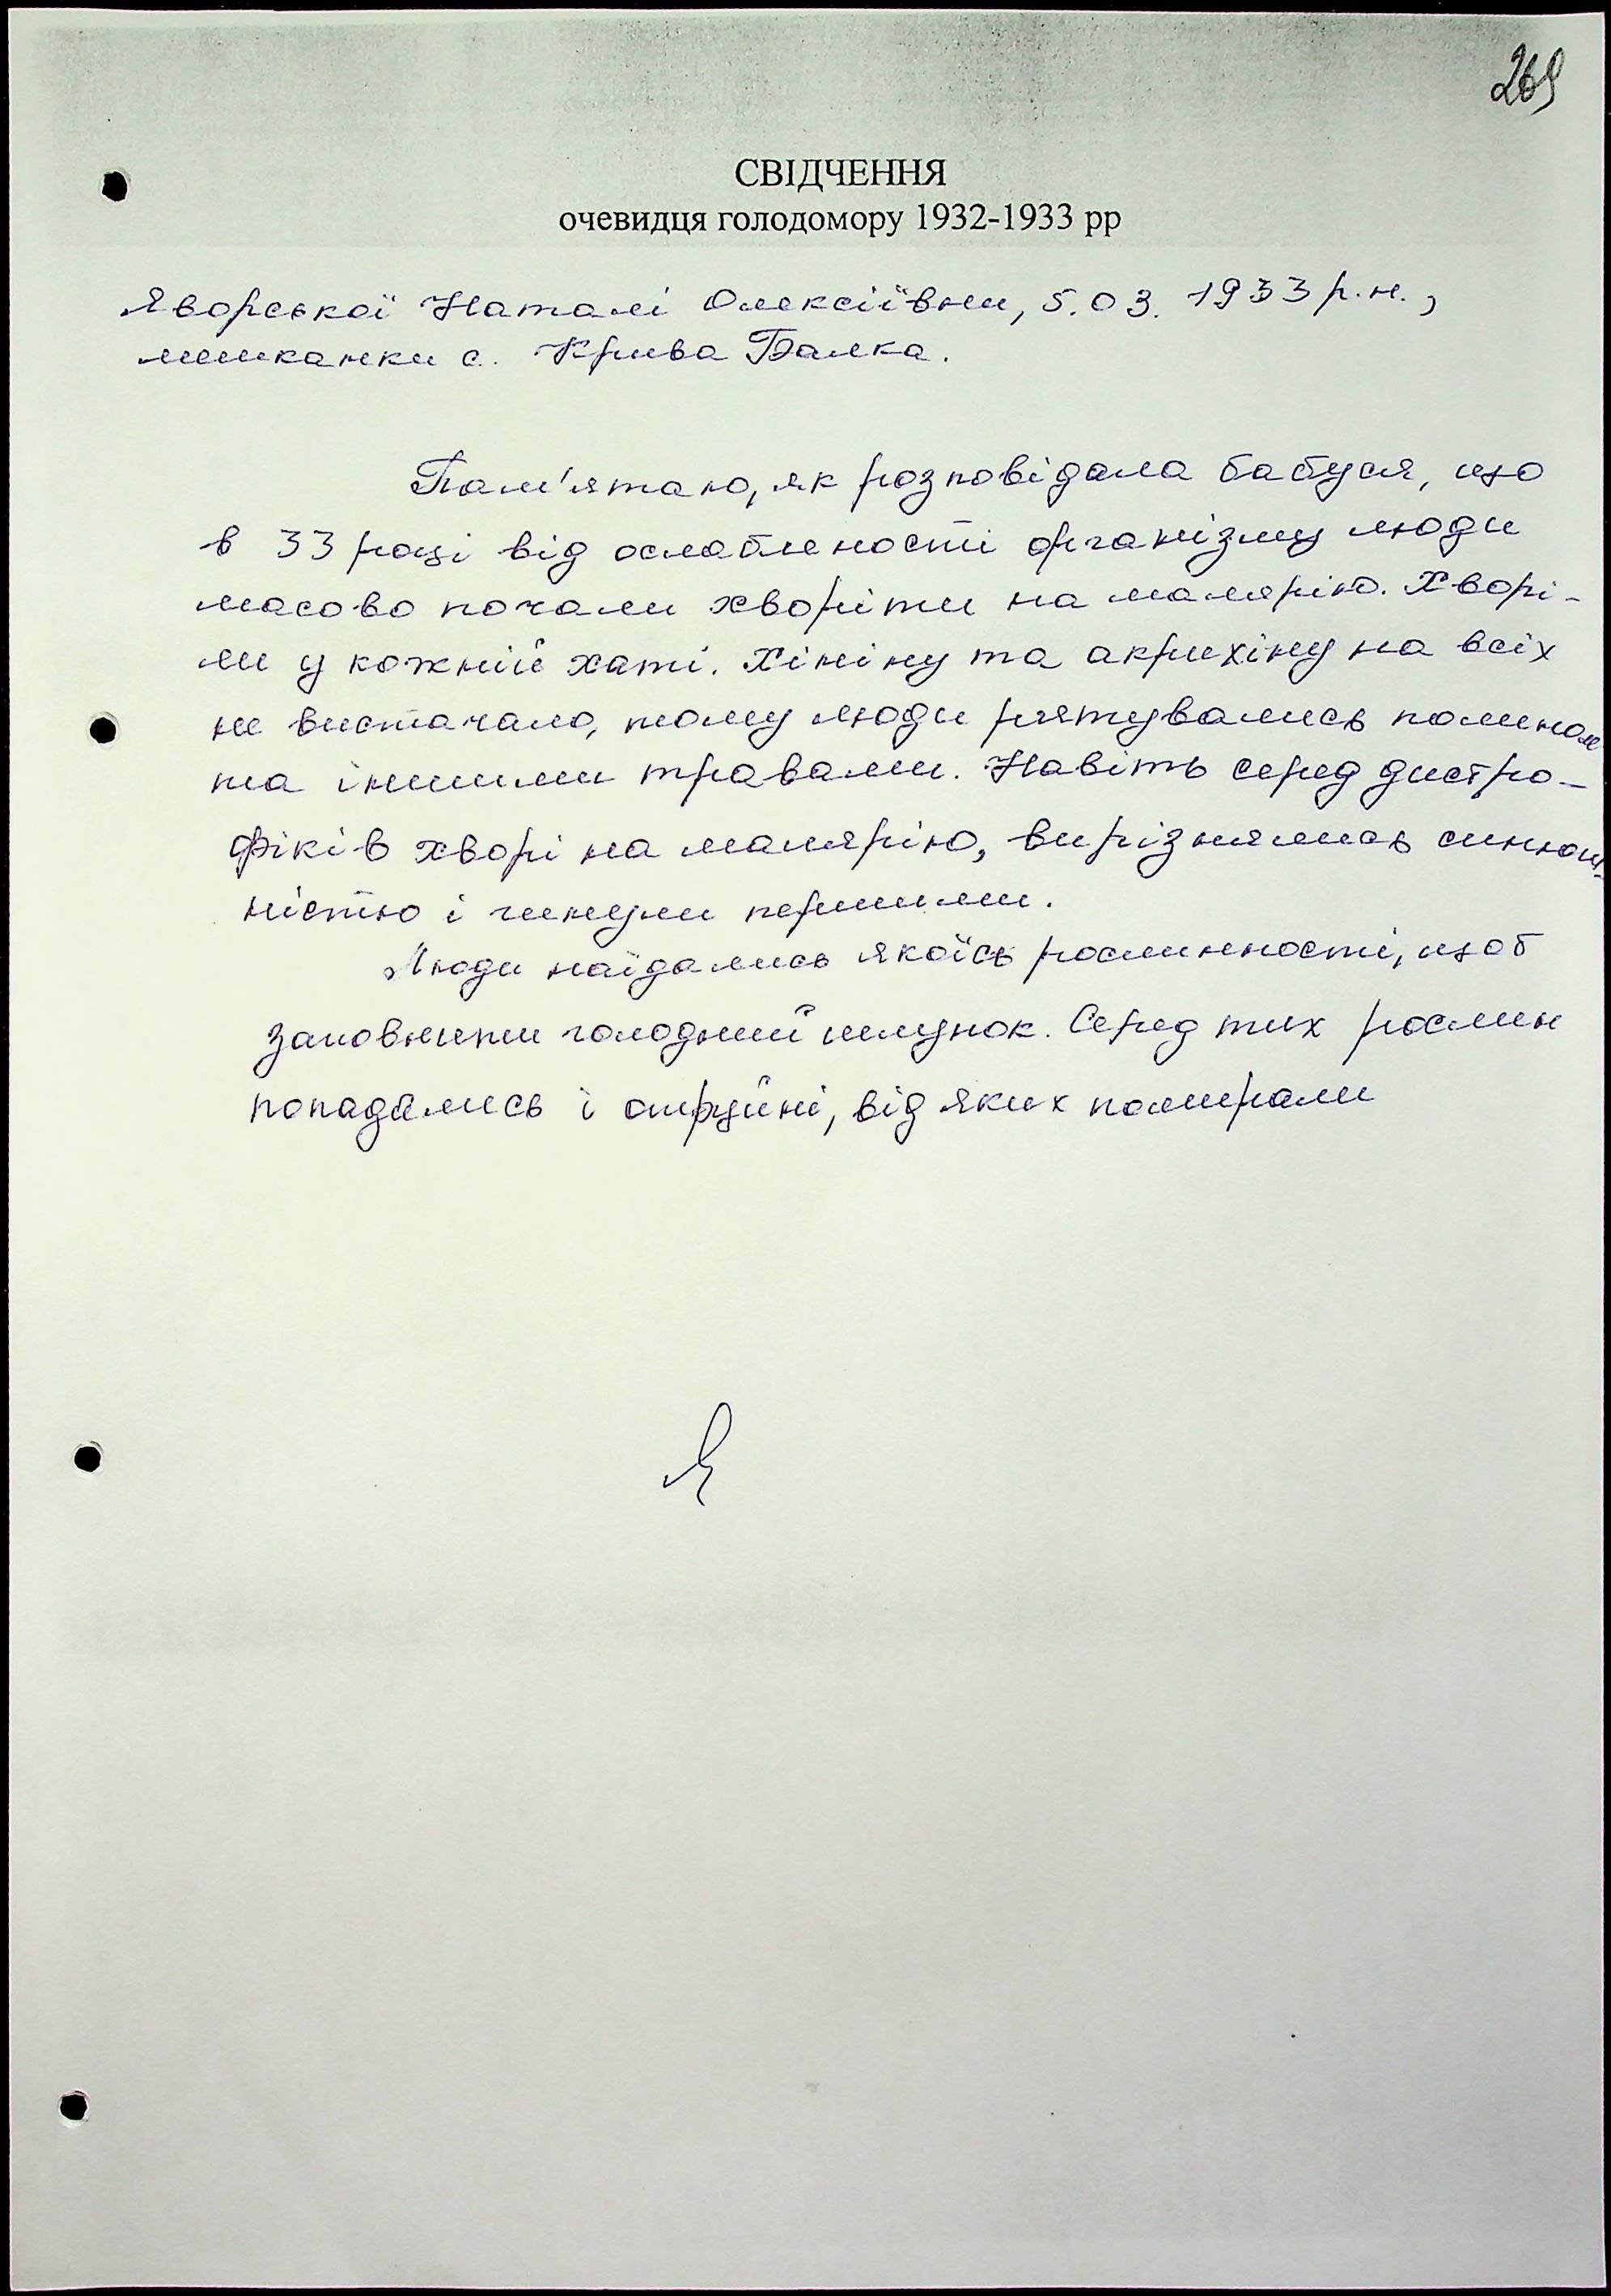 269
СВІДЧЕННЯ
очевидця голодомору 1932-1933 рр
Яворської Наталі Олексіївни, 5.03.1933 р.н.,
мешканки с. Крива Балка.
Пам'ятаю, як розповідала бабуся, що
в 33 році від ослабленості організму люди
масово почали хворіти на малярію. Хворі-
ли у кожній хаті. Хініну та акрихіну на всіх
не вистачало, тому люди рятувались полином
та іншими травами. Навіть серед дистро-
фіків хворі на малярію, вирізнялись синюш-
ністю і гинули першими.
Люди наїдались якоїсь рослинності, щоб
заповнити голодний шлунок. Серед тих рослин
попадались і отруйні, від яких помирали